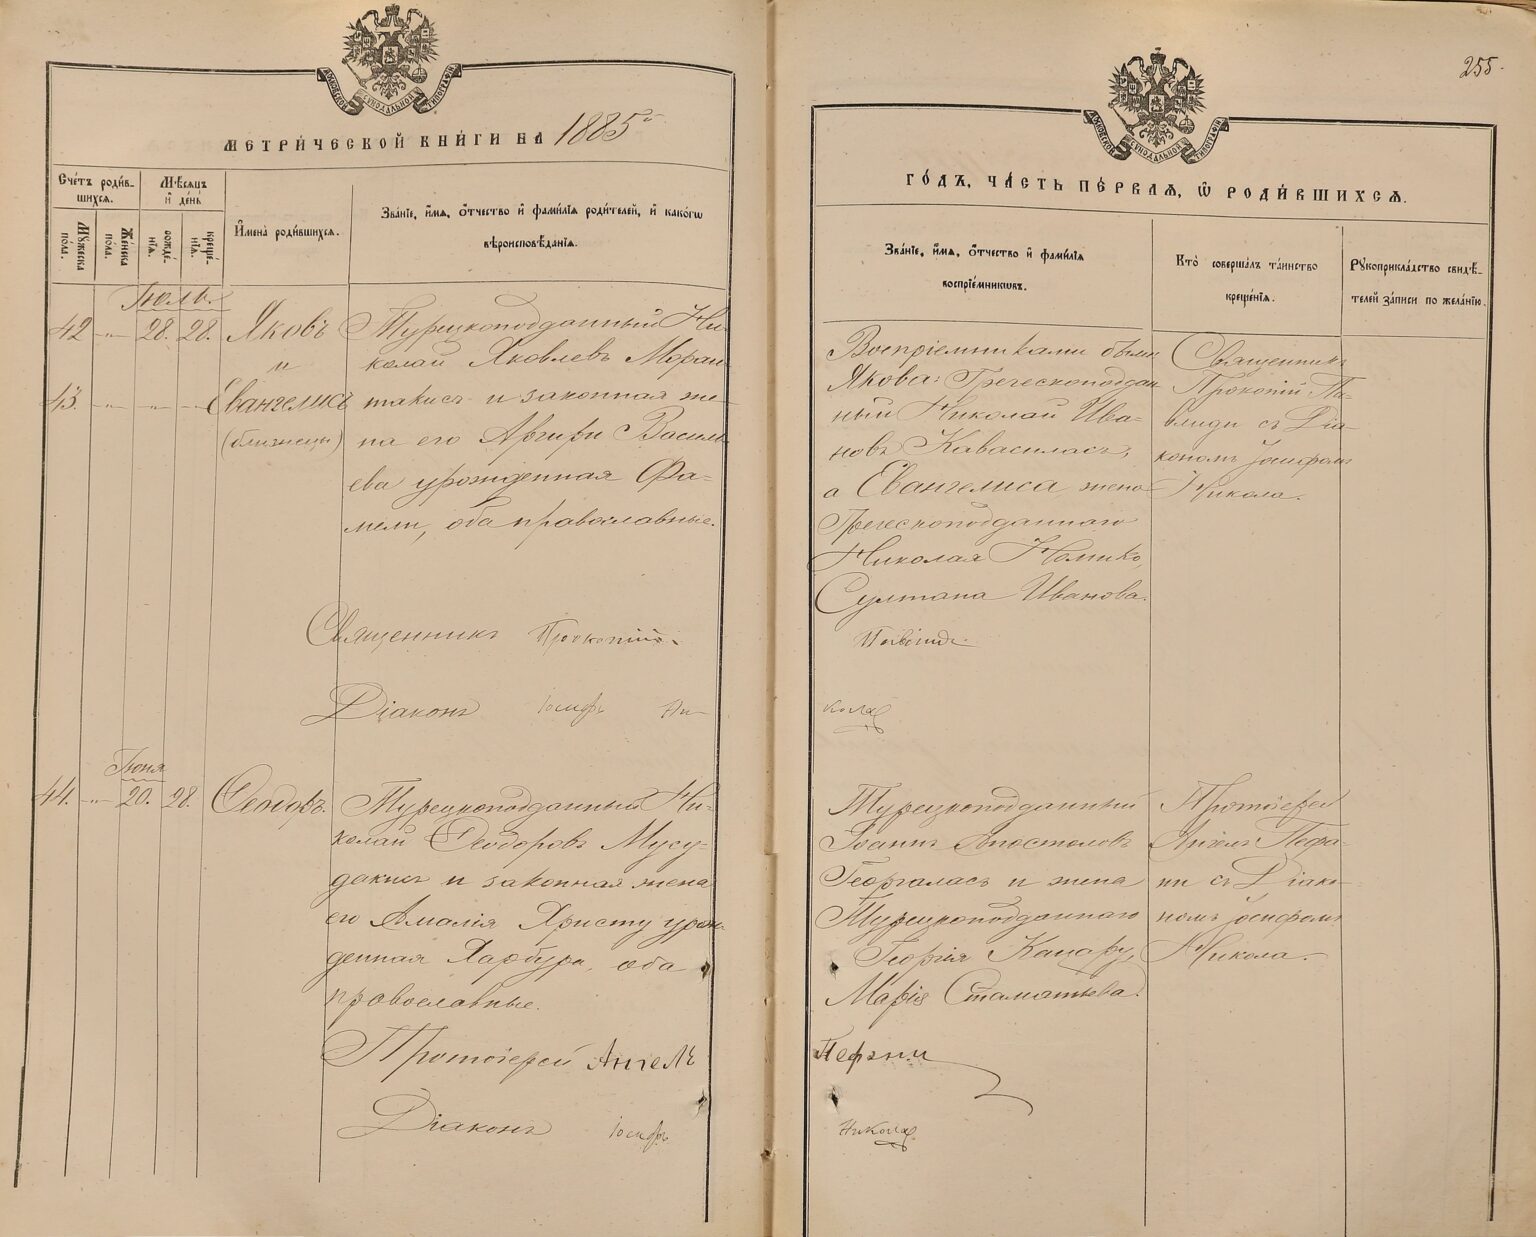 МЕТРИ́ЧЕСКОЙ КНИ́ГИ НА 1885й
Сче́тъ роди́в-
шихся.
Мѣ́сяцъ
и҆ де́нь
Му́жеска
по́ла.
Же́нска
по́ла.
рожде́-
нїя.
креще́-
нїя.
И҆мена̀ роди́вшихся.
Зва́нїе, и҆́мя, ѻ҆́тчество и҆ фамі́лїя роди́телей, и҆ како́гѡ
вѣроисповѣ́данїя.
Іюль.
42 „ 28. 28. Яковъ
и
43. „ „ „ Евангелисъ
(близнецы)
Турецкоподданный Ни-
колай Яковлевъ Моран-
такисъ и законная же-
на его Аргири Василь-
ева урожденная Фа-
мели, оба православные.
Священникъ Прокопій
Діаконъ Іосифъ Ни-
Іюня
44. „ 20. 28. Ѳеодоръ.
Турецкоподданный Ни-
колай Ѳеодоровъ Мусу-
дакисъ и законная жена
его Амалія Христу урож-
денная Харбури, оба
православные.
Протоіерей Ангелъ
Діаконъ Іосифъ
255.
ГО́ДЪ, ЧА́СТЬ ПЕ́РВАЯ, Ѡ҆ РОДИ́ВШИХСЯ.
Зва́нїе, и҆́мя, ѻ҆́тчество и҆ фамі́лїя
воспрїе́мникѡвъ.
Кто̀ соверша́лъ та́инство
креще́нїя.
Рꙋкоприкла́дство свидѣ́-
телей за́писи по жела́нїю.
Воспріемниками были
Якова: Греческоподдан-
ный Николай Ива-
новъ Кавасиласъ,
а Евангелиса жена
Греческоподданнаго
Николая Номико,
Султана Иванова.
Священникъ
Прокопій Па-
влиди съ Діа-
кономъ Іосифомъ
Никола.
кола
Турецкоподданный
Іоаннъ Апостоловъ
Георгаласъ и жена
Турецкоподданнаго
Георгія Канару,
Марія Стаматьева.
Протоіерей
Ангелъ Пефа-
ни съ Діако-
номъ Іосифомъ
Никола.
Пефани
Никола